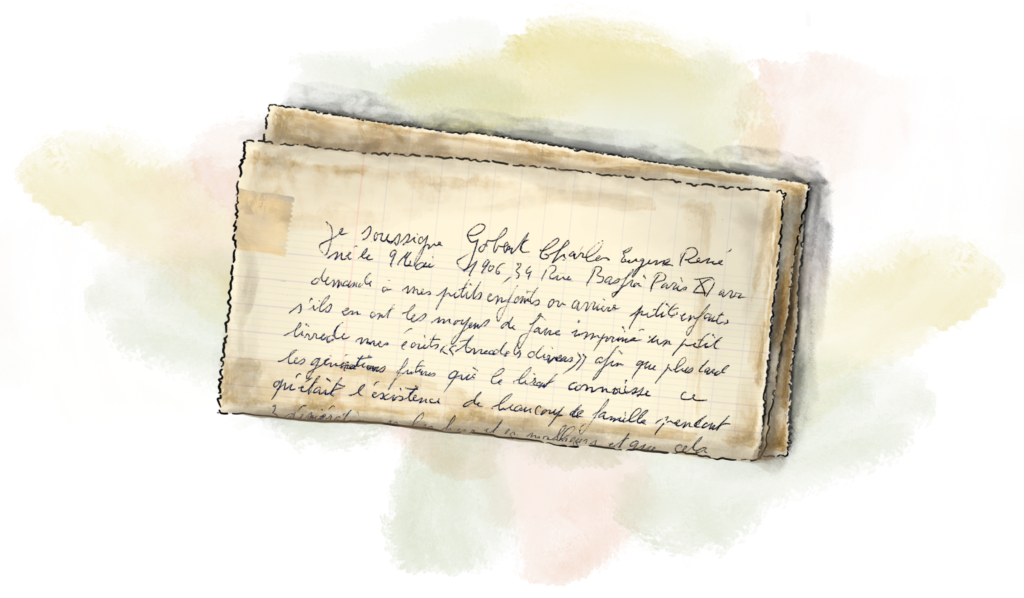 Je soussigne Gobert Charles Eugene René
né le 9 Mai 1906, 34 Rue Basfroi Paris XI
demande a mes petits enfants ou arriere petits enfants
s'ils en ont les moyens de faire imprimé un petit
livre de mes écrits, « divers » afin que plus tard
les générations futures qui le liront connaisse ce
qu'était l'éxistence de beaucoup de famille pendent
et que cela